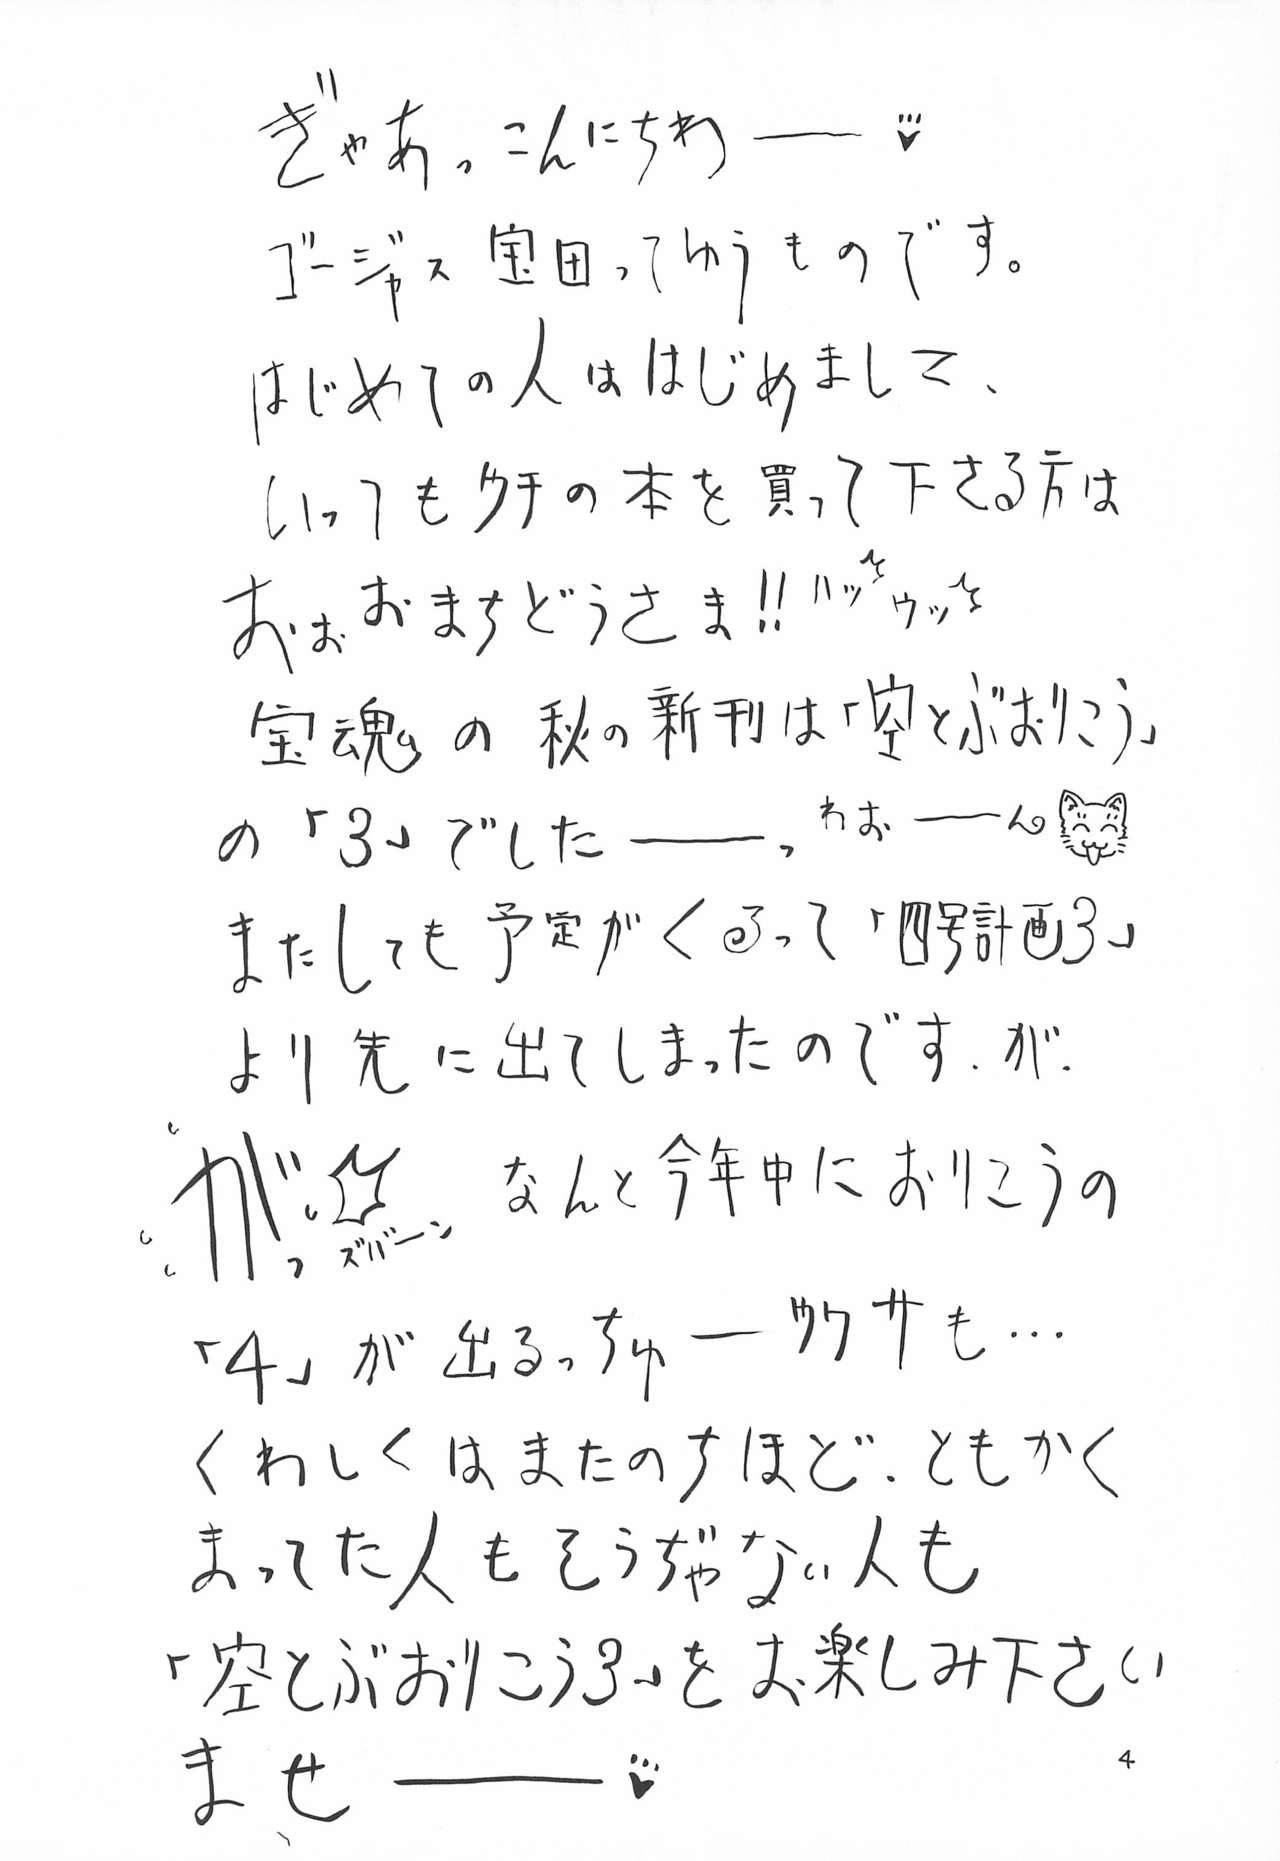 ぎゃあっこんにちわ――♥
ゴージャス宝田ってゆうものです。
はじめての人ははじめまして、
いっつもウチの本を買って下さる方は
おぉおまちどうさま!! ハッ ウッ
宝魂の秋の新刊は「空とぶおりこう」
の「3」でしたーーっ わおーーん
またしても予定がくるって「四号計画3」
より先に出てしまったのです.が.
がっ ズバーン なんと今年中におりこうの
「4」が出るっちゅーウワサも…
くわしくはまたのちほど.ともかく
まってた人もそうぢゃない人も
「空とぶおりこう3」をお楽しみ下さい
ませ――♥
4